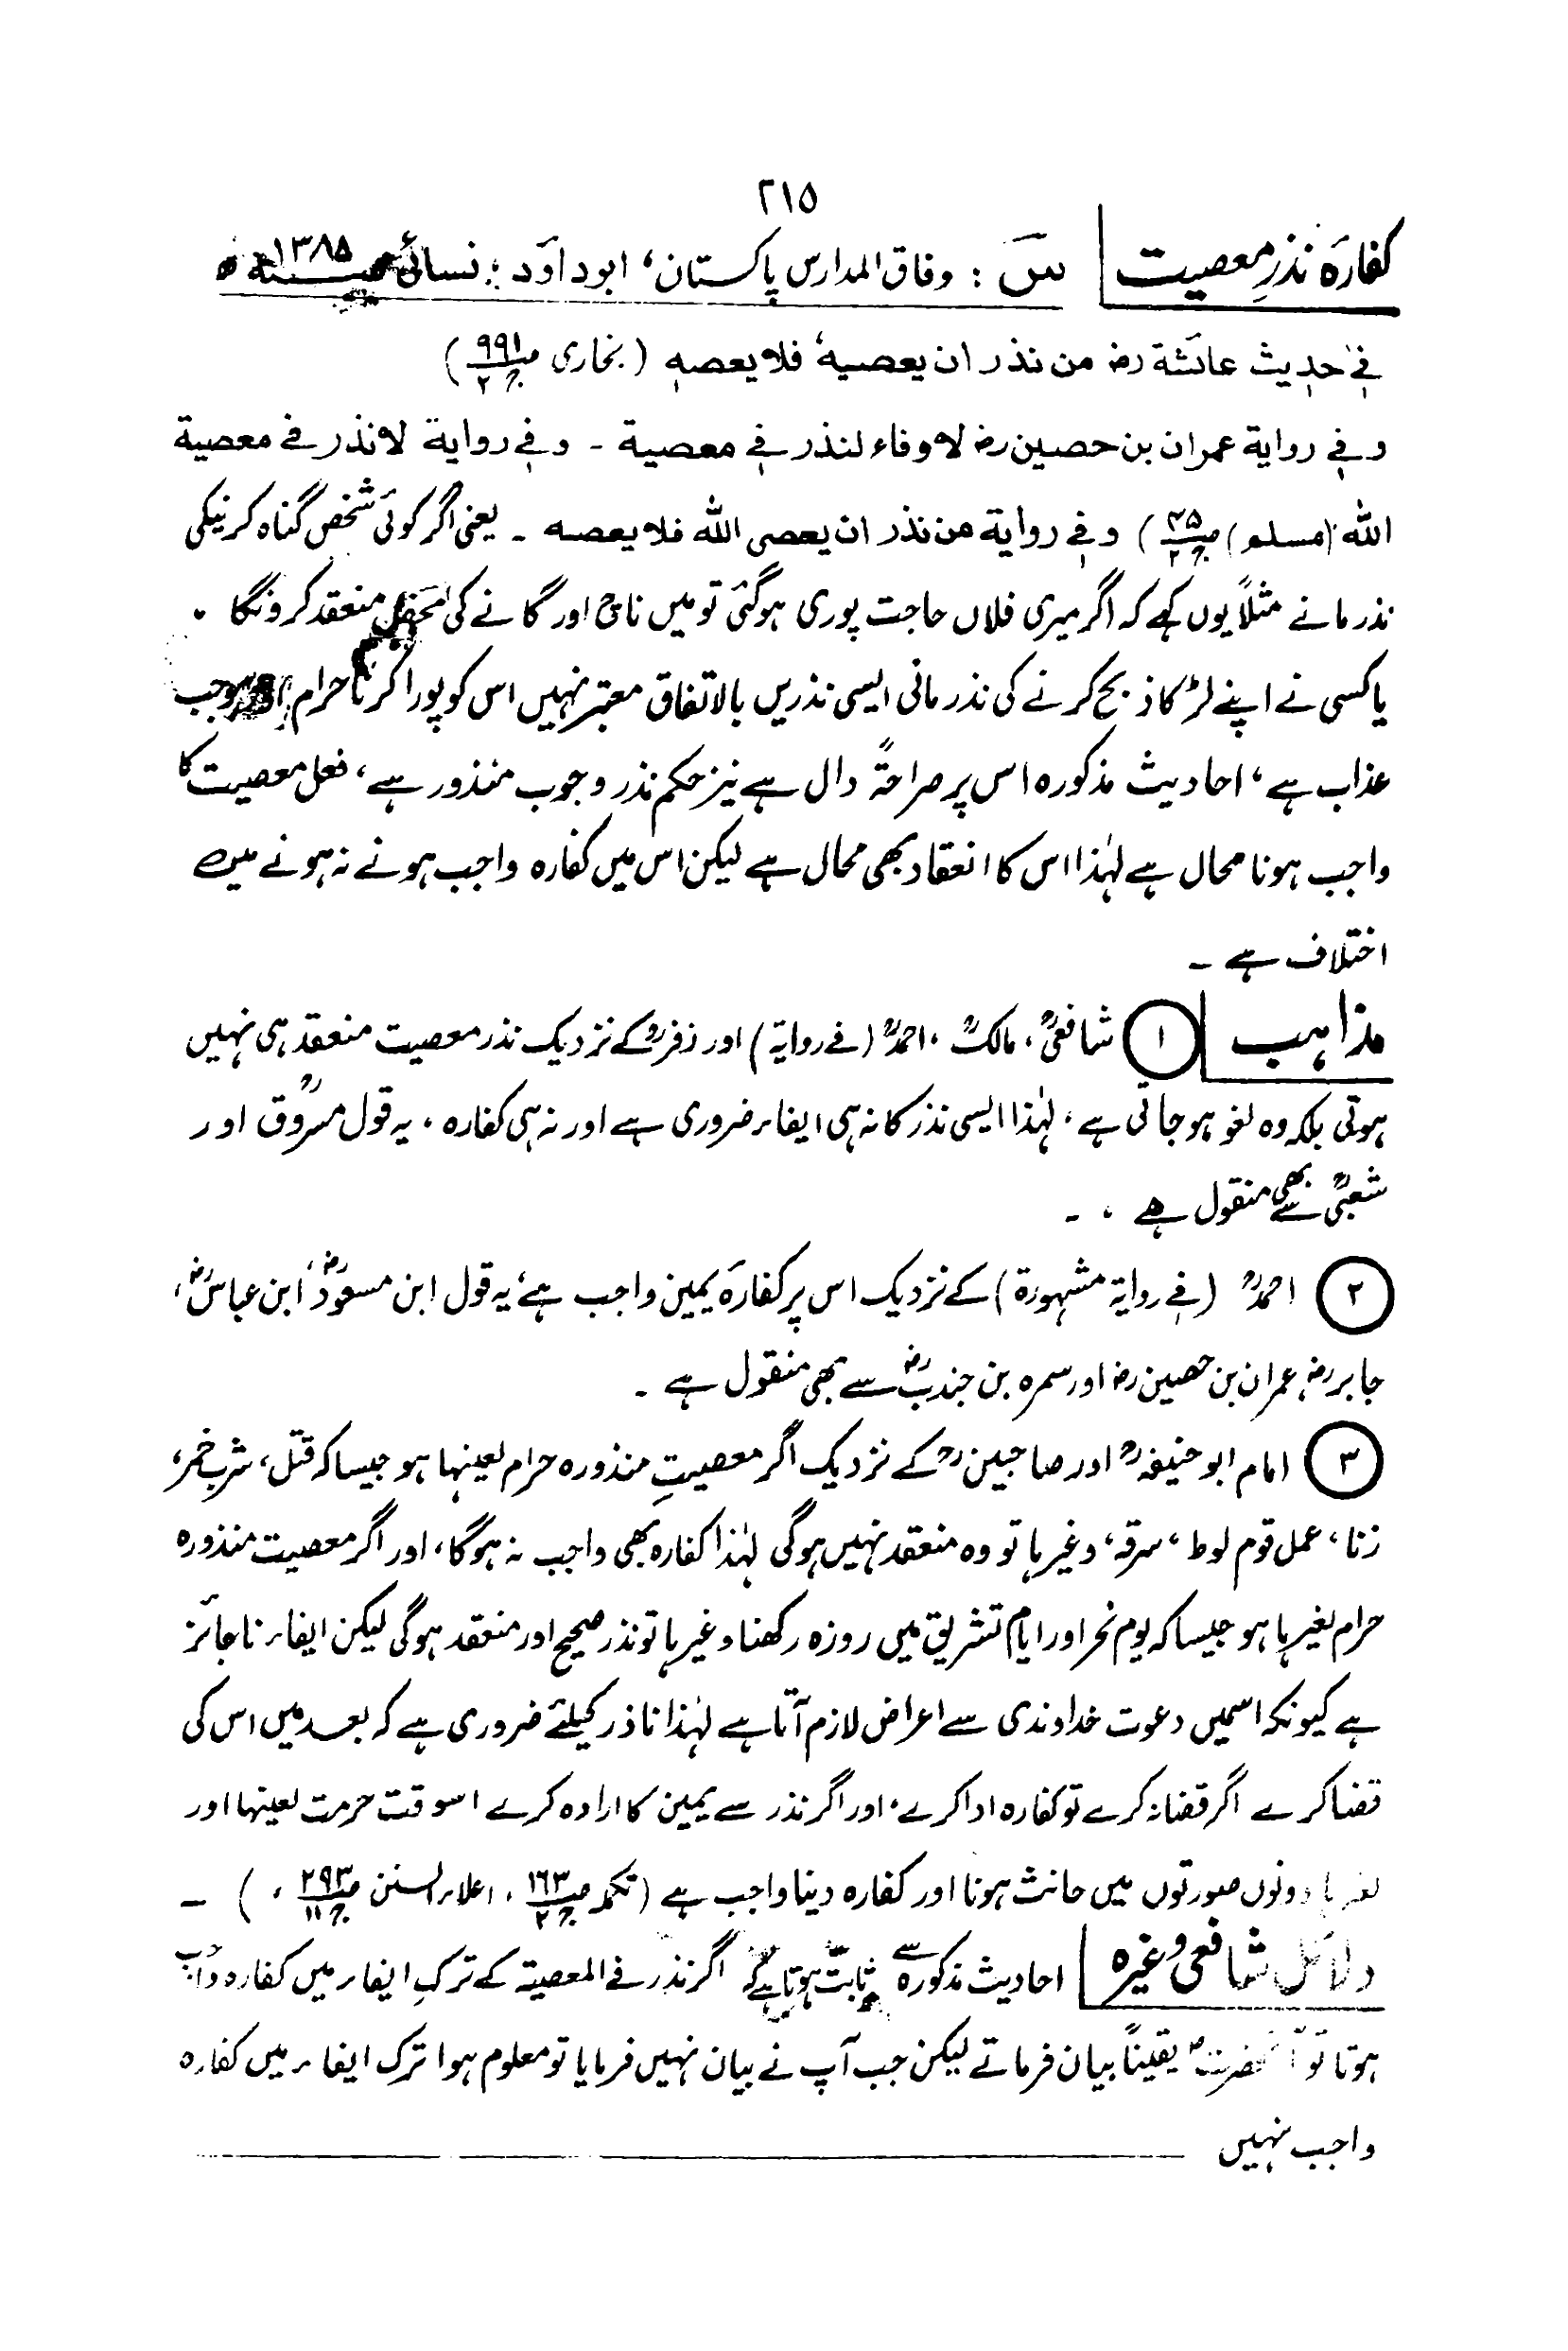 ۲۱۵
کفارۂ نذرِ معصیت س : وفاق المدارس پاکستان، ابوداؤد؛ نسائی ۱۳۸۵ھ
فی حدیث عائشة رض من نذر ان یعصیه، فلا یعصه (بخاری ص۹۹۱ ج۲)
وفی روایة عمران بن حصین رض لاوفاء لنذر فی معصیة ۔ وفی روایة لا نذر فی معصیة
الله (مسلم) ص۴۵ ج۲) وفی روایة من نذر ان یعصی الله فلا یعصه ۔ یعنی اگر کوئی شخص گناہ کرنیکی
نذر مانے مثلاً یوں کہے کہ اگر میری فلاں حاجت پوری ہوگئی تو میں ناچ اور گانے کی محفل منعقد کرونگا ۔
یا کسی نے اپنے لڑکا ذبح کرنے کی نذر مانی ایسی نذریں بالاتفاق معتبر نہیں اس کو پورا کرنا حرام اور موجب
عذاب ہے، احادیث مذکورہ اس پر صراحۃً دال ہے نیز حکم نذر وجوب منذور ہے، فعل معصیت کا
واجب ہونا محال ہے لہٰذا اس کا انعقاد بھی محال ہے لیکن اس میں کفارہ واجب ہونے نہ ہونے میں
اختلاف ہے ۔
مذاہب ① شافعیؒ، مالکؒ، احمدؒ (فی روایۃ) اور زفرؒ کے نزدیک نذر معصیت منعقد ہی نہیں
ہوتی بلکہ وہ لغو ہو جاتی ہے، لہٰذا ایسی نذر کا نہ ہی ایفاء ضروری ہے اور نہ ہی کفارہ، یہ قول مسروقؒ اور
شعبیؒ سے بھی منقول ہے ، ۔
② احمدؒ (فی روایۃ مشہورۃ) کے نزدیک اس پر کفارۂ یمین واجب ہے، یہ قول ابن مسعودؓ، ابن عباسؓ،
جابر رض، عمران بن حصین رض اور سمرہ بن جندبؓ سے بھی منقول ہے ۔
③ امام ابوحنیفہؒ اور صاحبینؒ کے نزدیک اگر معصیتِ منذورہ حرام لعینہا ہو جیسا کہ قتل، شربِ خمر،
زنا، عمل قوم لوط، سرقہ، وغیرہا تو وہ منعقد نہیں ہوگی لہٰذا کفارہ بھی واجب نہ ہوگا، اور اگر معصیت منذورہ
حرام لغیرہا ہو جیسا کہ یوم نحر اور ایام تشریق میں روزہ رکھنا وغیرہا تو نذر صحیح اور منعقد ہوگی لیکن ایفاء ناجائز
ہے کیونکہ اسمیں دعوت خداوندی سے اعراض لازم آتا ہے لہٰذا ناذر کیلئے ضروری ہے کہ بعد میں اس کی
قضا کرے اگر قضا نہ کرے تو کفارہ ادا کرے، اور اگر نذر سے یمین کا ارادہ کرے اسوقت حرمت لعینہا اور
لغیرہا دونوں صورتوں میں حانث ہونا اور کفارہ دینا واجب ہے (تکملہ ص۱۶۳ ج۲، اعلاء السنن ص۲۹۳ ج۱۱، ) ۔
دلائل شافعی وغیرہ احادیث مذکورہ سے ثابت ہوتا ہے کہ اگر نذر فی المعصیۃ کے ترکِ ایفاء میں کفارہ واجب
ہوتا تو آنحضرتؐ یقیناً بیان فرماتے لیکن جب آپ نے بیان نہیں فرمایا تو معلوم ہوا ترک ایفاء میں کفارہ
واجب نہیں